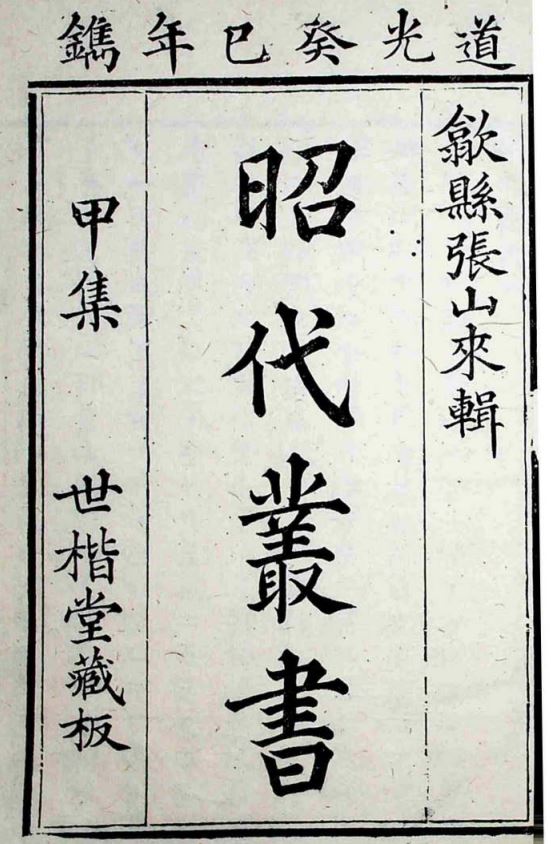 道光癸巳年鐫
歙縣張山來輯
昭代叢書
甲集 世楷堂藏板